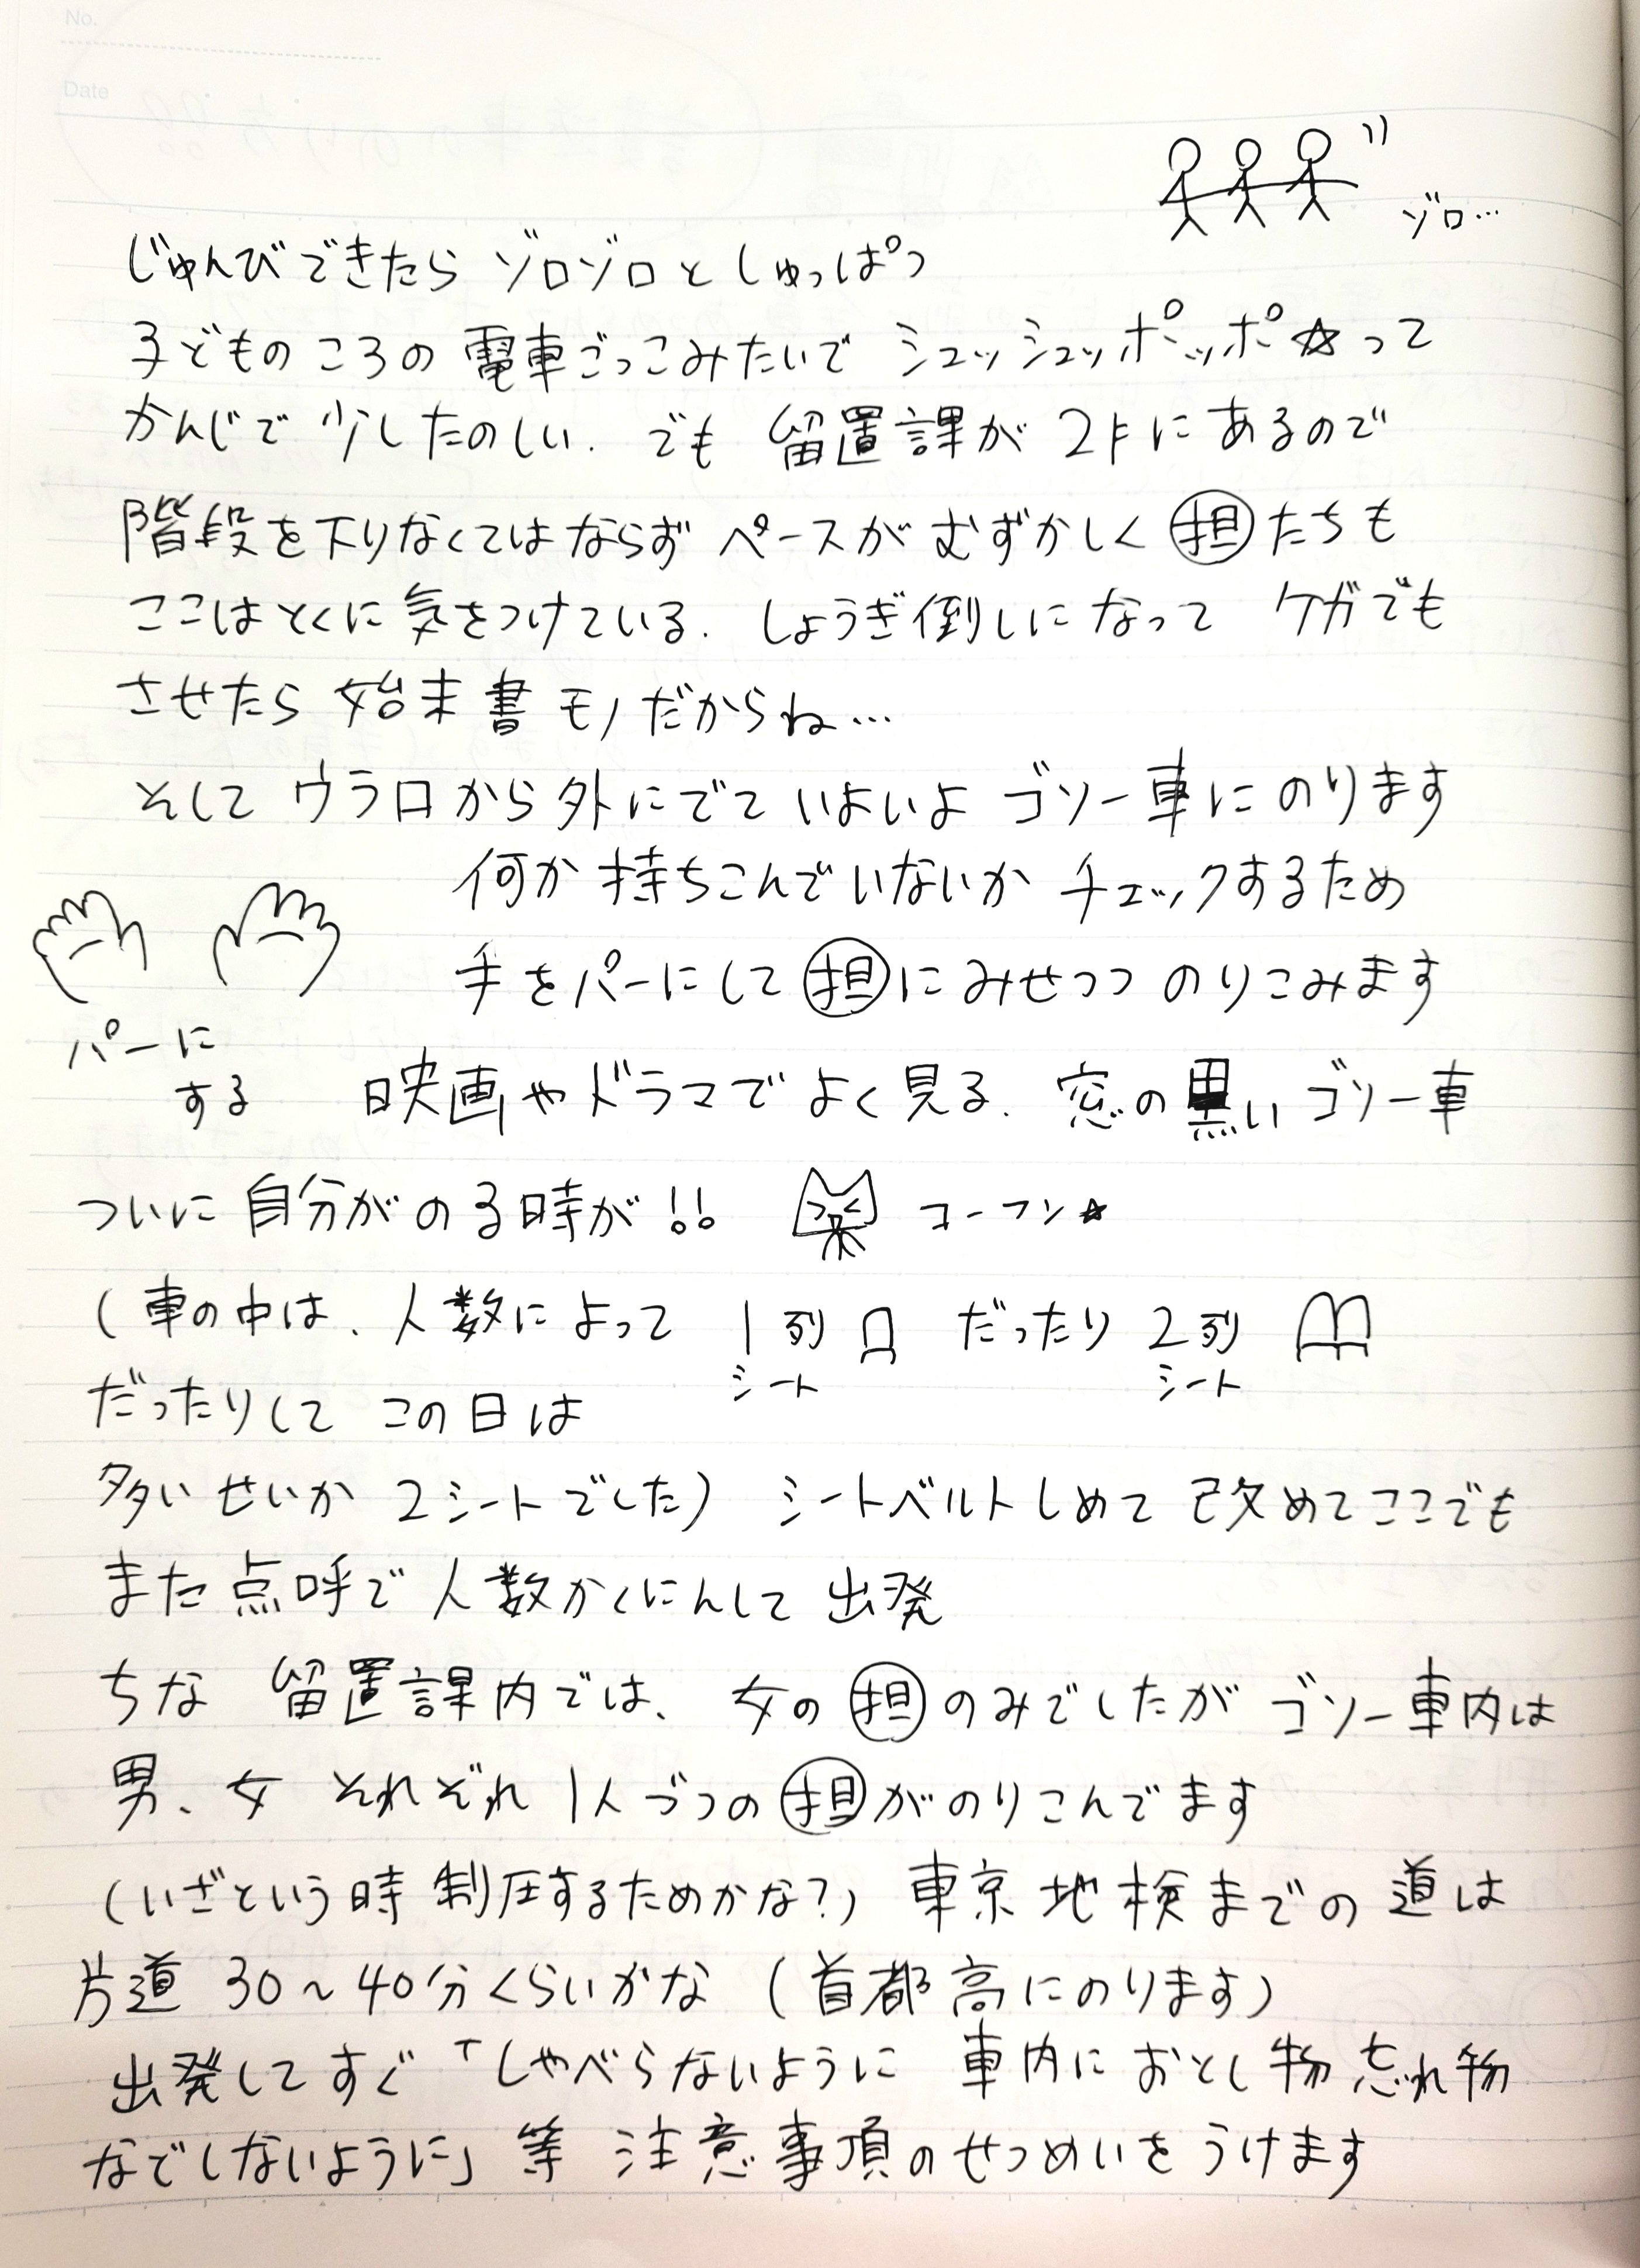 No.
Date
ゾロ…
じゅんびできたら ゾロゾロと しゅっぱつ
子どものころの 電車ごっこみたいで シュッシュッポッポ☆って
かんじで 少したのしい. でも 留置課が 2Fにあるので
階段を下りなくてはならず ペースが むずかしく ㊀担たちも
ここはとくに気をつけている. しょうぎ倒しになって ケガでも
させたら 始末書モノだからね…
そして ウラ口から外にでて いよいよ ゴソー車にのります
何か持ちこんでいないか チェックするため
手をパーにして 担にみせつつ のりこみます
パーに
する
映画やドラマで よく見る、窓の黒い ゴソー車
ついに 自分がのる時が!! コーフン☆
(車の中は、人数によって 1列シート だったり 2列シート
だったりして この日は
多いせいか 2シートでした) シートベルトしめて 改めてここでも
また点呼で 人数かくにんして 出発
ちな 留置課内では、女の担のみでしたが ゴソー車内は
男、女 それぞれ 1人づつの担がのりこんでます
(いざという時 制圧するためかな?) 東京地検までの 道は
片道 30~40分くらいかな (首都高にのります)
出発してすぐ「しゃべらないように 車内におとし物 忘れ物
などしないように」等 注意事項のせつめいをうけます